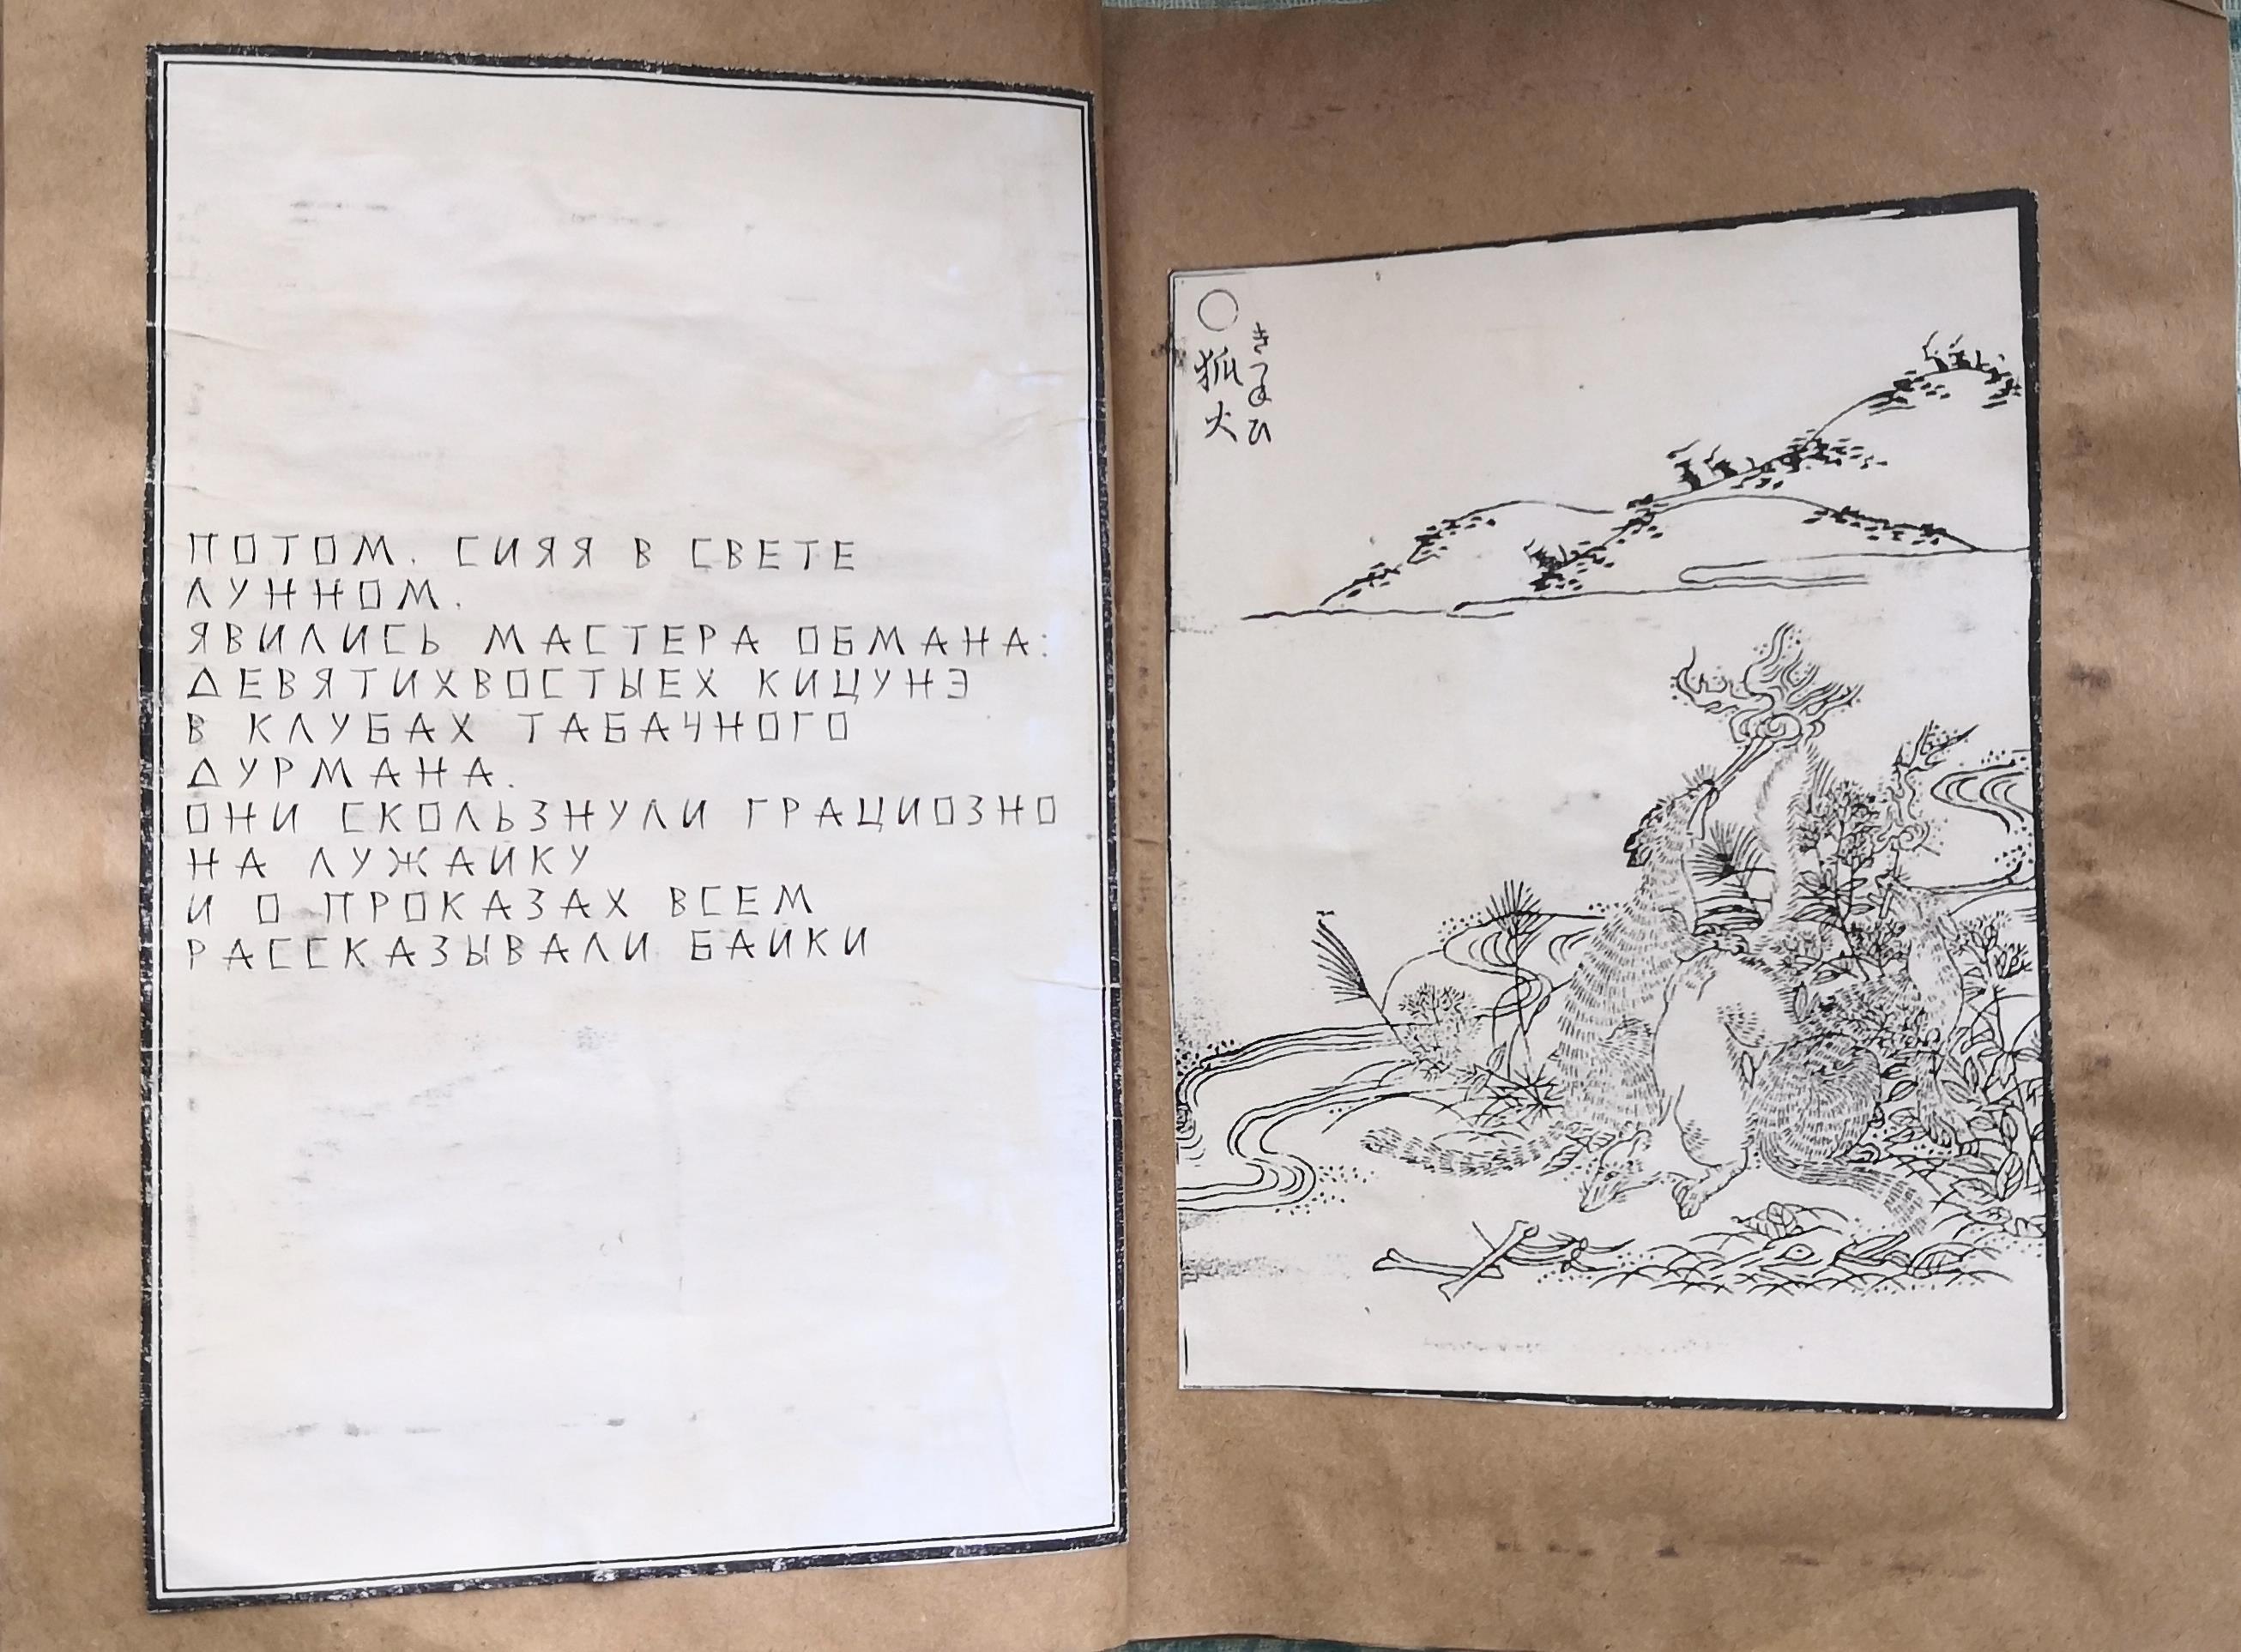 ПОТОМ, СИЯЯ В СВЕТЕ
ЛУННОМ,
ЯВИЛИСЬ МАСТЕРА ОБМАНА:
ДЕВЯТИХВОСТЫЕХ КИЦУНЭ
В КЛУБАХ ТАБАЧНОГО
ДУРМАНА.
ОНИ СКОЛЬЗНУЛИ ГРАЦИОЗНО
НА ЛУЖАЙКУ
И О ПРОКАЗАХ ВСЕМ
РАССКАЗЫВАЛИ БАЙКИ
きつねひ
狐火